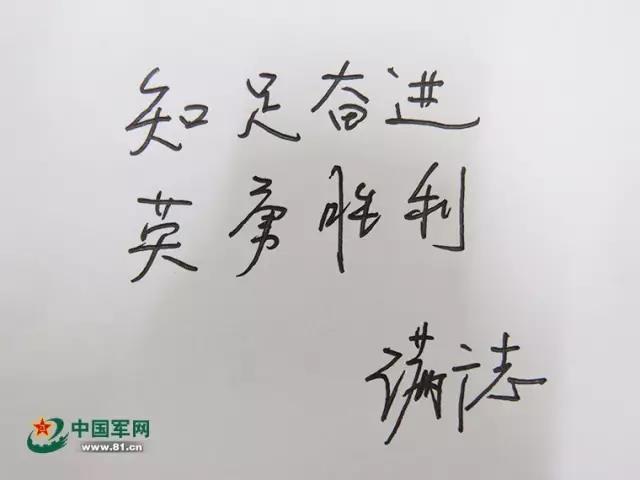 知足奋进
英勇胜利
满广志
中国军网
www.81.cn